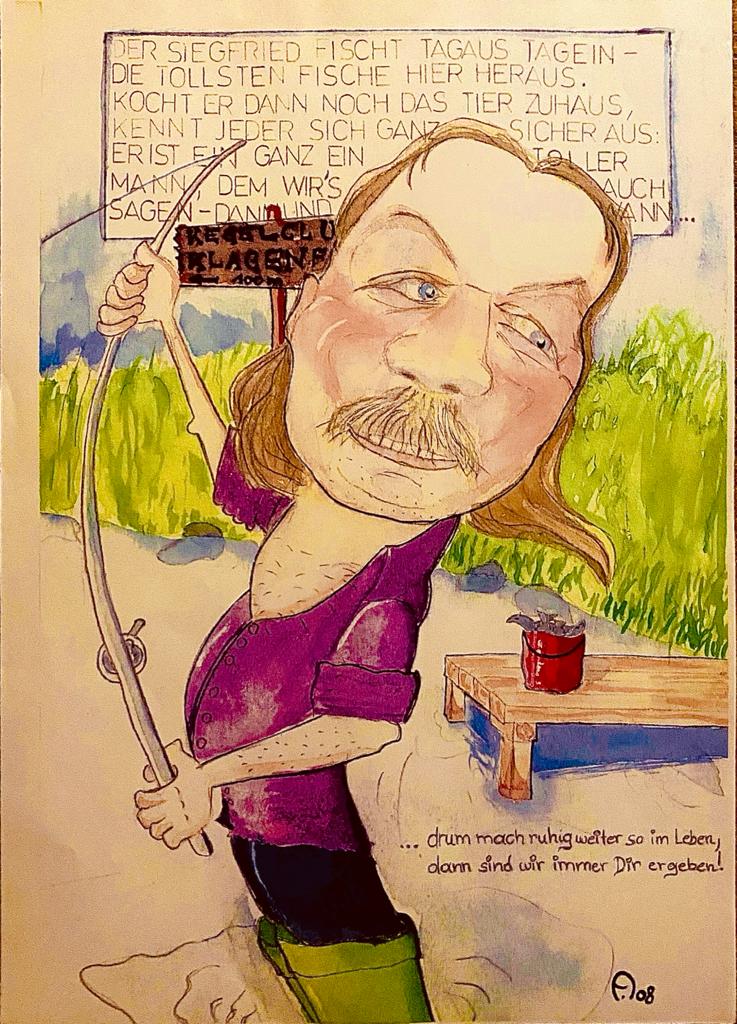 DER SIEGFRIED FISCHT TAGAUS TAGEIN -
DIE TOLLSTEN FISCHE HIER HERAUS.
KOCHT ER DANN NOCH DAS TIER ZUHAUS,
KENNT JEDER SICH GANZ SICHER AUS:
ER IST EIN GANZ EIN TOLLER
MANN, DEM WIR'S AUCH
SAGEN - DANN UND WANN...
KEGELCLU
KLAGENF
100 m
... drum mach ruhig weiter so im Leben,
dann sind wir immer Dir ergeben!
A.08